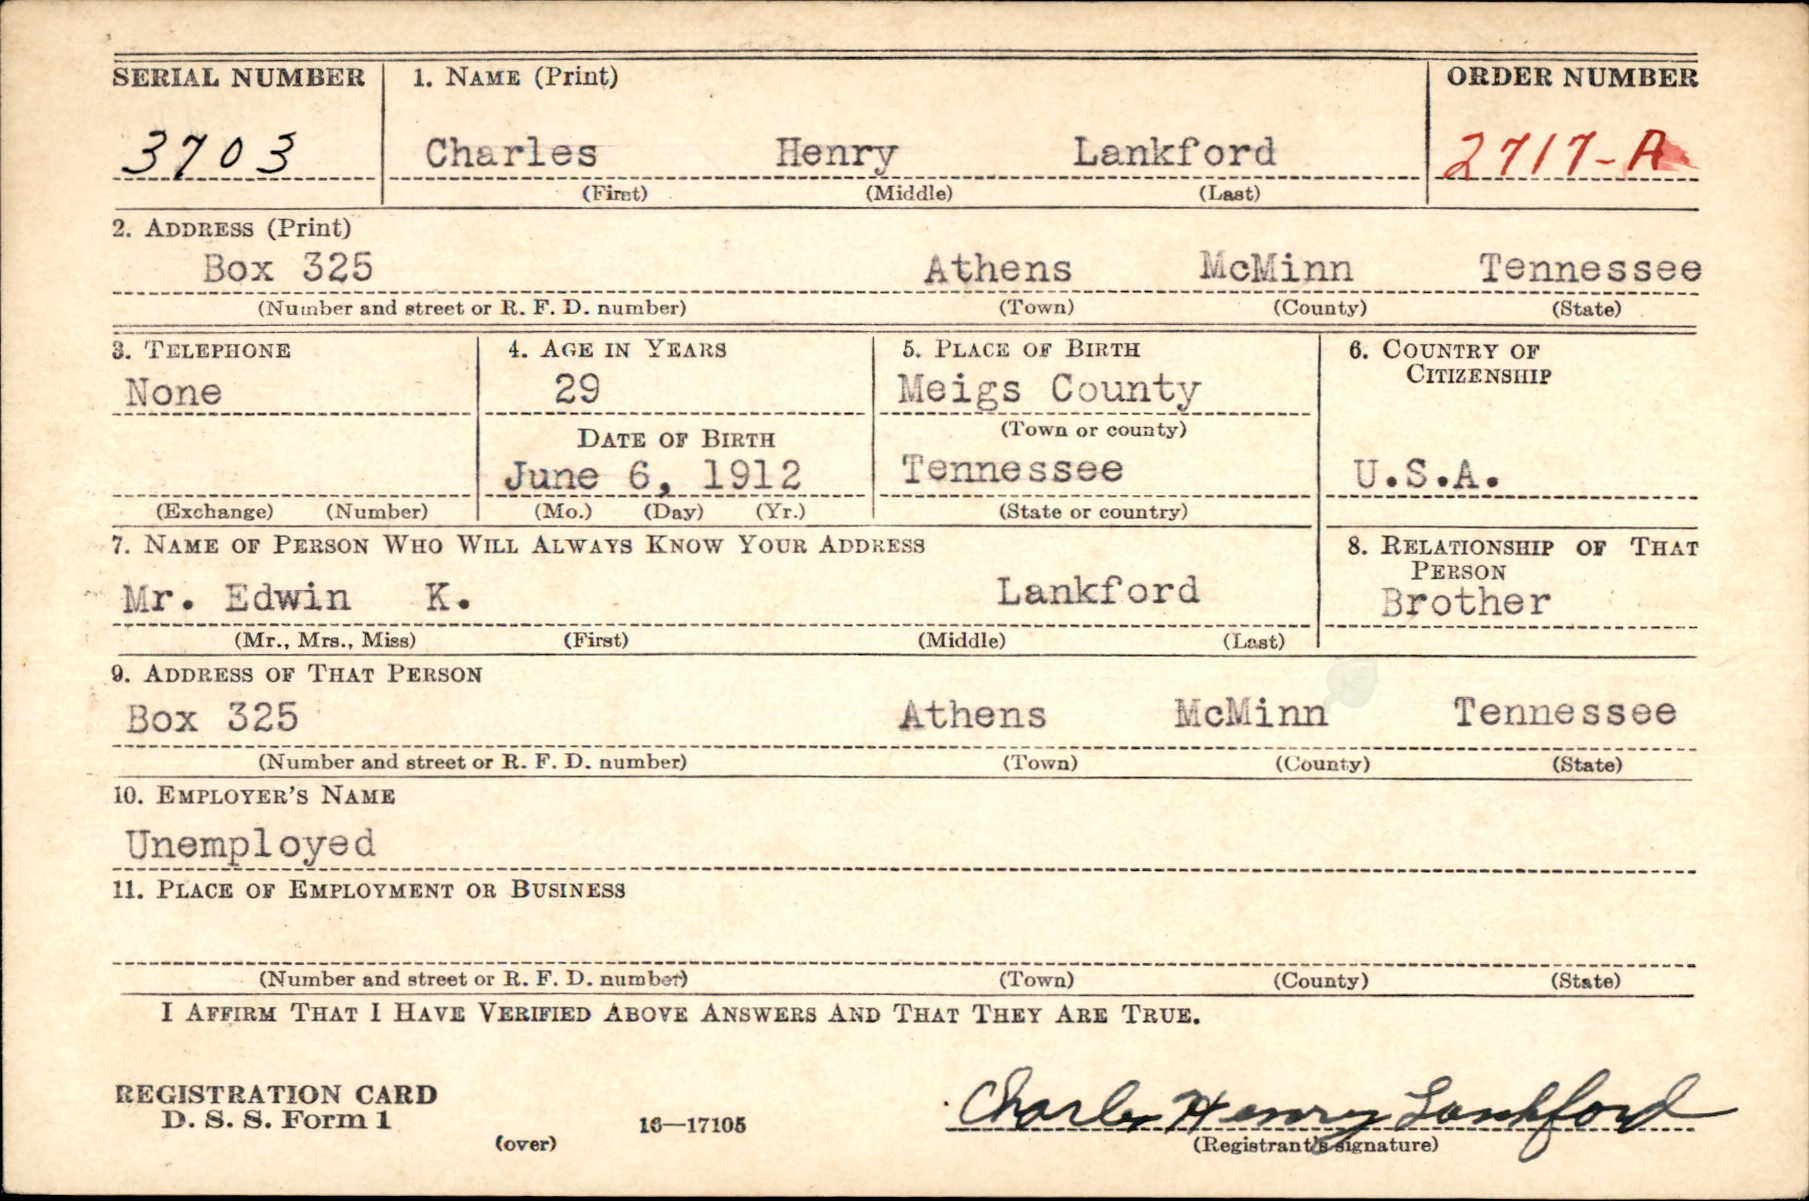 SERIAL NUMBER 1. NAME (Print) ORDER NUMBER
3703 Charles Henry Lankford 2717-A
(First) (Middle) (Last)
2. ADDRESS (Print)
Box 325 Athens McMinn Tennessee
(Number and street or R. F. D. number) (Town) (County) (State)
3. TELEPHONE 4. AGE IN YEARS 5. PLACE OF BIRTH 6. COUNTRY OF
CITIZENSHIP
None 29 Meigs County
DATE OF BIRTH (Town or county)
June 6, 1912 Tennessee U.S.A.
(Exchange) (Number) (Mo.) (Day) (Yr.) (State or country)
7. NAME OF PERSON WHO WILL ALWAYS KNOW YOUR ADDRESS 8. RELATIONSHIP OF THAT
PERSON
Mr. Edwin K. Lankford Brother
(Mr., Mrs., Miss) (First) (Middle) (Last)
9. ADDRESS OF THAT PERSON
Box 325 Athens McMinn Tennessee
(Number and street or R. F. D. number) (Town) (County) (State)
10. EMPLOYER'S NAME
Unemployed
11. PLACE OF EMPLOYMENT OR BUSINESS
(Number and street or R. F. D. number) (Town) (County) (State)
I AFFIRM THAT I HAVE VERIFIED ABOVE ANSWERS AND THAT THEY ARE TRUE.
REGISTRATION CARD
D. S. S. Form 1 16—17105 Charles Henry Lankford
(over) (Registrant's signature)